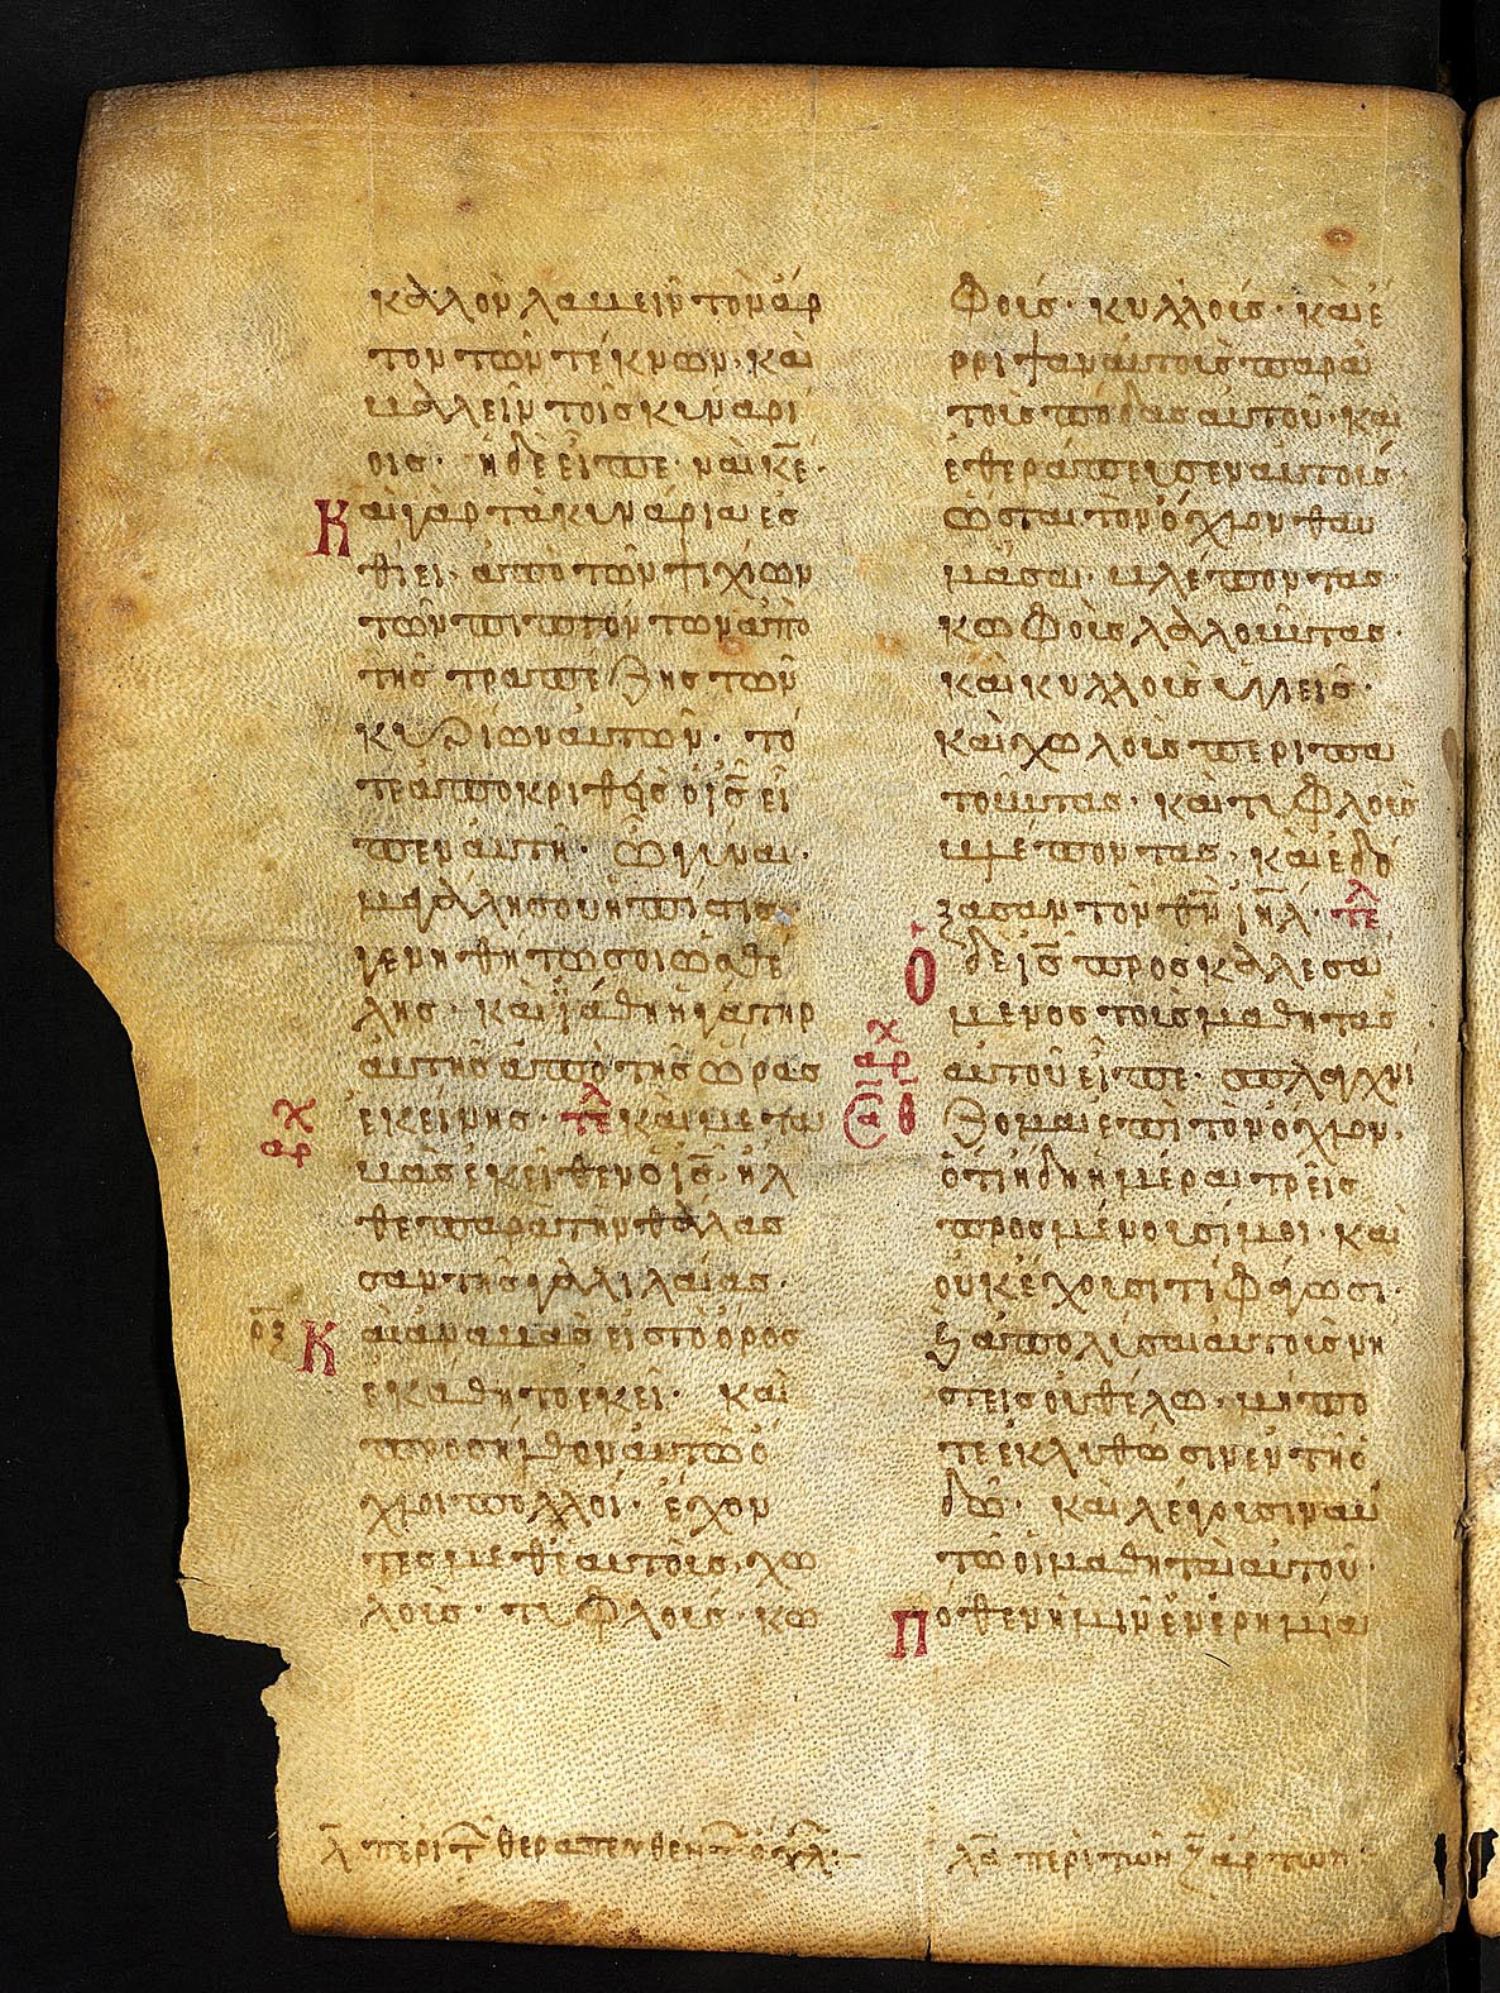 καλὸν λαβεῖν τὸν ἄρ
τον τῶν τέκνων, καὶ
βαλεῖν τοῖς κυναρί
οις· ἡ δὲ εἶπε· ναὶ κ̅ε̅·
Καὶ γὰρ τὰ κυνάρια ἐσ
θίει· ἀπὸ τῶν ψιχίων
τῶν πιπτόν των ἀπὸ
τῆς τραπέζης τῶν
κυρίων αὐτῶν· τό
τε ἀποκριθεὶς ὁ ι̅ς̅ εἶ
πεν αὐτῆ· ὦ γύναι·
μεγάλη σου ἡ πίστις
γενηθήτω σοι ὡς θέ
λης· καὶ ἰάθη ἡ θυγάτηρ
αὐτῆς ἀπὸ τῆς ὥρας
ἀρχ ἐκείνης· τελ καὶ μετα
βὰς ἐκεῖθεν ὁ ι̅ς̅· ἦλ
θε παρὰ τὴν θάλασ
σαν τῆς γαλιλαίας·
ο̅ζ̅ Καὶ ἀναβὰς εἰς τὸ ὄρος
ἐκάθητο ἐκεῖ· καὶ
προσῆλθον αὐτῶ ὄ
χλοι πολλοί· ἔχον
τες μεθ' ἑαυτοῖς, χω
λοὶς· τυφλοὶς· κω
φοὶς· κυλλοὶς· καὶ ἔ
ρριψαν αὐτοὶς παρὰ
τοὶς πόδας αὐτοῦ· καὶ
ἐθεράπευσεν αὐτοὶς·
ὥσται τὸν ὄχλον θαυ
μάσαι· βλέποντας
κωφοὶς λαλοῦντας·
καὶ κυλλοὶς ὑγιεῖς·
καὶ χωλοὶς περιπα
τοῦντας· καὶ τυφλοὶς
βλέποντας· καὶ ἐδό
ξασαν τὸν θ̅ν̅ ι̅η̅λ̅· τελ
Ὁ δὲ ι̅ς̅ προσκαλεσά
μενος τοὶς μαθητὰς
ἀρχ αὐτοῦ εἶπε· σπλαγχνί
ζομαι ἐπὶ τὸν ὄχλον,
ὅτι ἤδη ἡμέραι τρεῖς
προσμένουσί μοι· καὶ
οὐκ ἔχουσι τί φάγωσι·
ϗ ἀπολύσαι αὐτοὶς νη
στεις οὐ θέλω· μήπο
τε ἐκλυθῶσιν ἐν τῆ ὁ
δῶ· καὶ λέγουσιν αὐ
τῶ οἱ μαθηταὶ αὐτοῦ·
Πόθεν ἡμῖν ἐν ἐρημία
λ̅ περὶ τ θεραπευθεν
λ̅α̅ περὶ τῶν ζ̅ ἄρτων